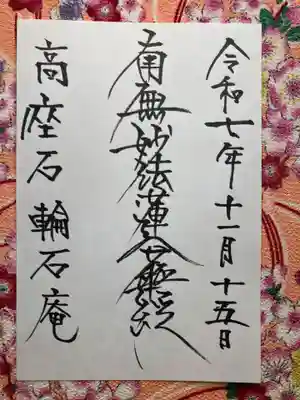 令和七年十一月十五日
南無妙法蓮華経
高座石輪石庵